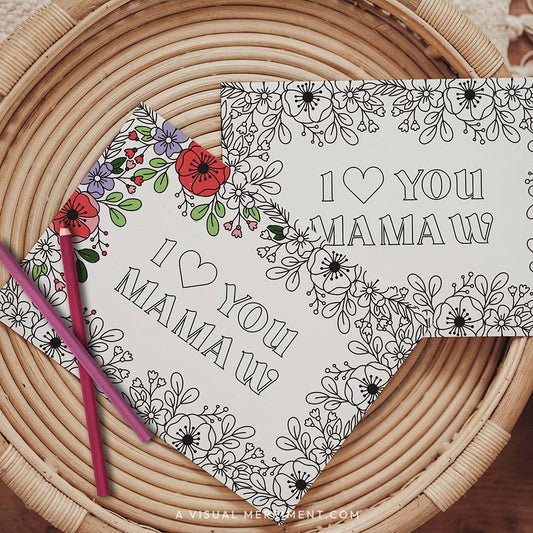 I ♡ YOU
MAMAW
I ♡ YOU
MAMAW
A VISUAL MERRIMENT.COM